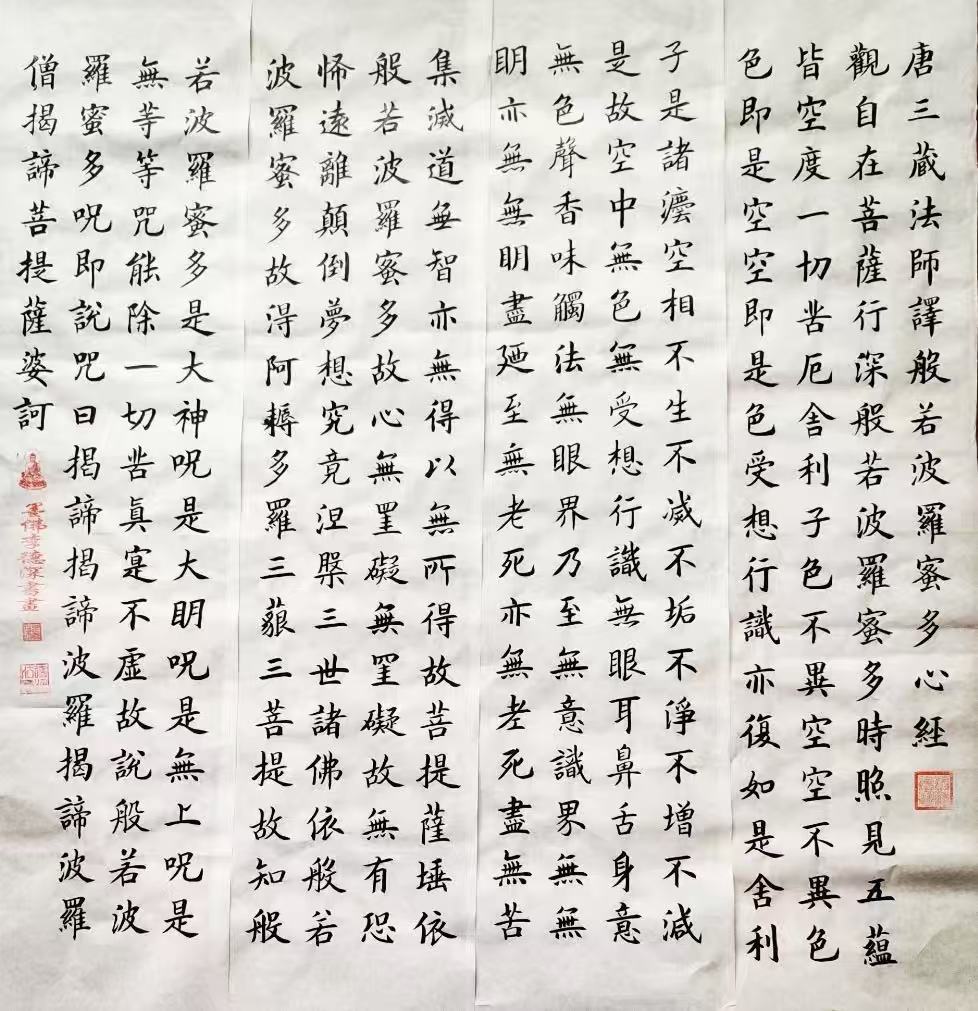 唐三藏法師譯般若波羅蜜多心經
觀自在菩薩行深般若波羅蜜多時照見五蘊
皆空度一切苦厄舍利子色不異空空不異色
色即是空空即是色受想行識亦復如是舍利
子是諸灋空相不生不滅不垢不淨不增不減
是故空中無色無受想行識無眼耳鼻舌身意
無色聲香味觸法無眼界乃至無意識界無無
眀亦無無眀盡廼至無老死亦無老死盡無苦
集滅道無智亦無得以無所得故菩提薩埵依
般若波羅蜜多故心無罣礙無罣礙故無有恐
怖遠離顛倒夢想究竟涅槃三世諸佛依般若
波羅蜜多故得阿耨多羅三藐三菩提故知般
若波羅蜜多是大神呪是大眀呪是無上呪是
無等等咒能除一切苦眞寔不虛故說般若波
羅蜜多呪即說咒曰揭諦揭諦波羅揭諦波羅
僧揭諦菩提薩婆訶
書畫